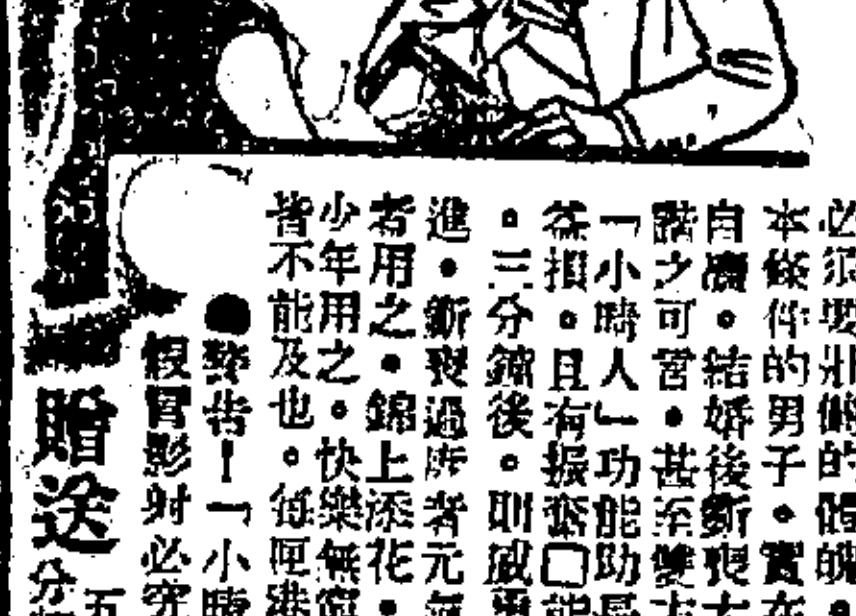 必須要壯健的體魄。
本條件的男子。實在
自瀆。結婚後斵喪太
諧之可言。甚至雙方
「小時人」功能助長
益損。且有振奮□能
。三分鐘後。則威
進。斵喪過度者元氣
者用之。錦上添花。
少年用之。快樂無窮
皆不能及也。每匣港
●警告!「小時
假冒影射必究
贈送
五
分